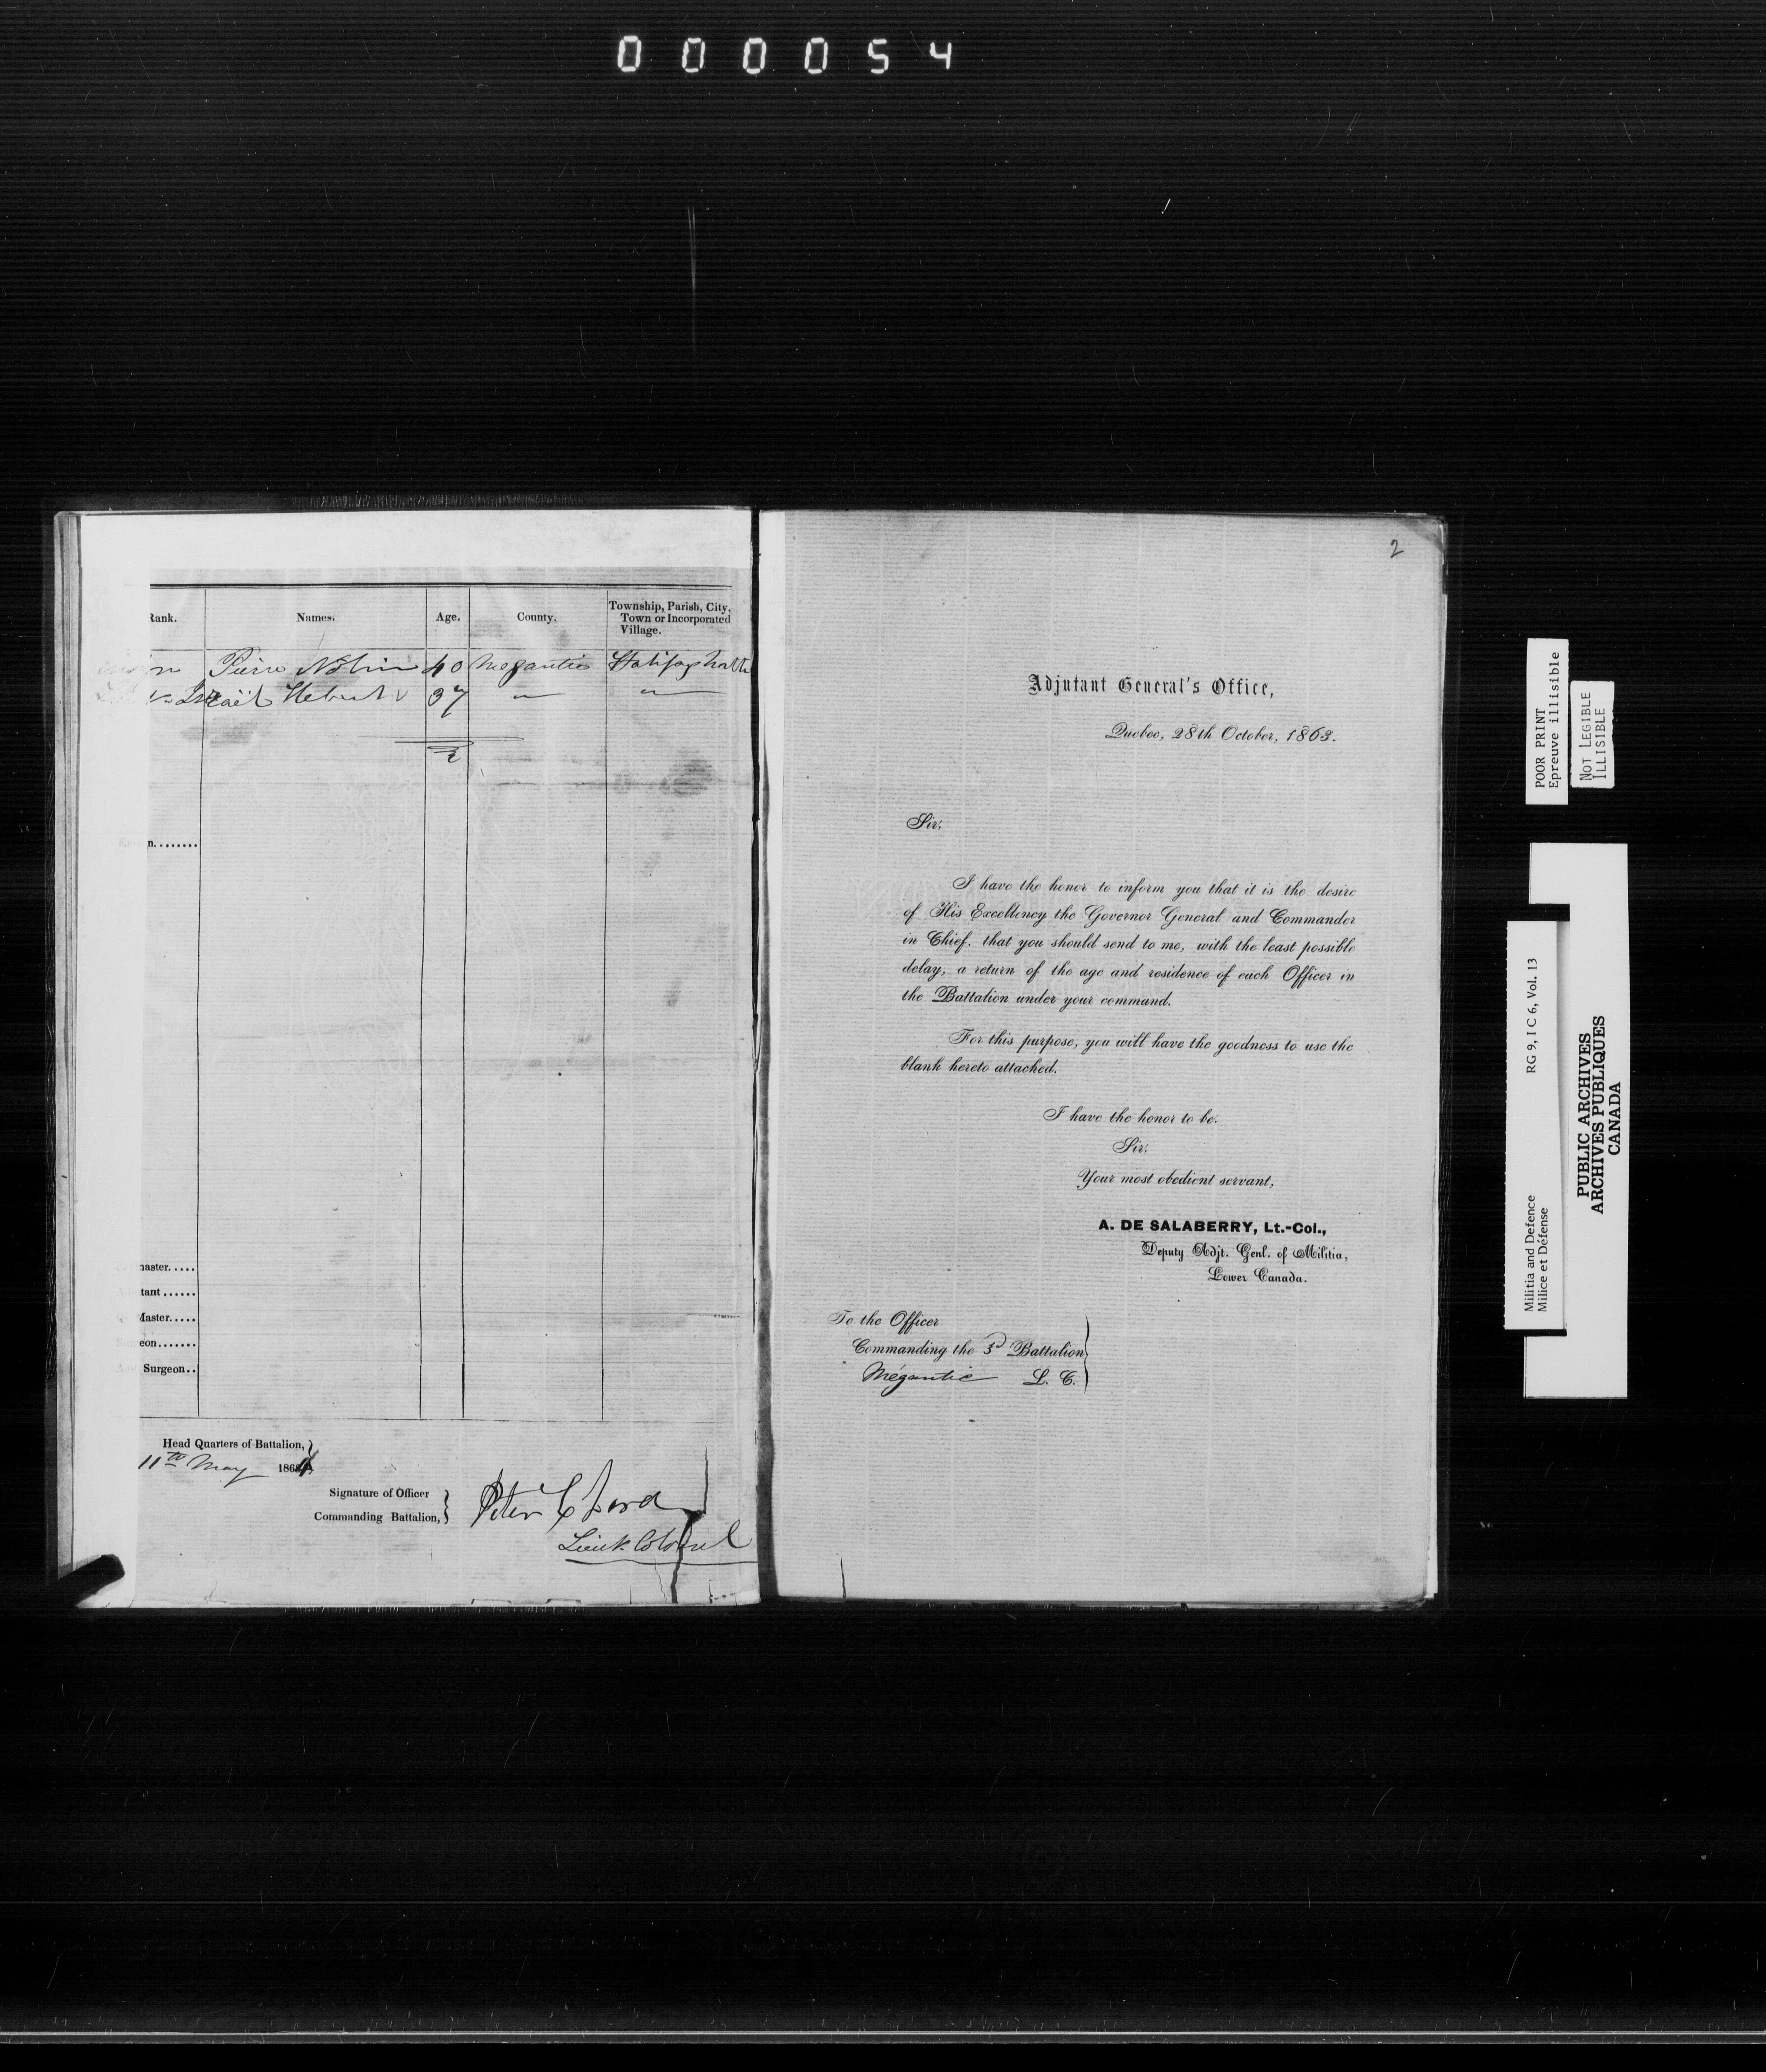 000054
Rank. Names. Age. County. Township, Parish, City, Town or Incorporated Village.
Pierre Nolin 40 Megantic Halifax North
Israël Hebert 37 " "
2
n........
master.....
tant......
Master.....
eon.......
Surgeon..
Head Quarters of Battalion,
11th May 1864
Signature of Officer
Commanding Battalion,
Peter C Lord
Lieut. Colonel
2
Adjutant General's Office,
Quebec, 28th October, 1863.
Sir,
I have the honor to inform you that it is the desire
of His Excellency the Governor General and Commander
in Chief, that you should send to me, with the least possible
delay, a return of the age and residence of each Officer in
the Battalion under your command.
For this purpose, you will have the goodness to use the
blank hereto attached.
I have the honor to be,
Sir,
Your most obedient servant,
A. DE SALABERRY, Lt.-Col.,
Deputy Adjt. Genl. of Militia,
Lower Canada.
To the Officer
Commanding the 3d Battalion
Mégantic L. C.
POOR PRINT
Epreuve illisible
NOT LEGIBLE
ILLISIBLE
RG 9, I C 6, Vol. 13
Militia and Defence
Milice et Défense
PUBLIC ARCHIVES
ARCHIVES PUBLIQUES
CANADA